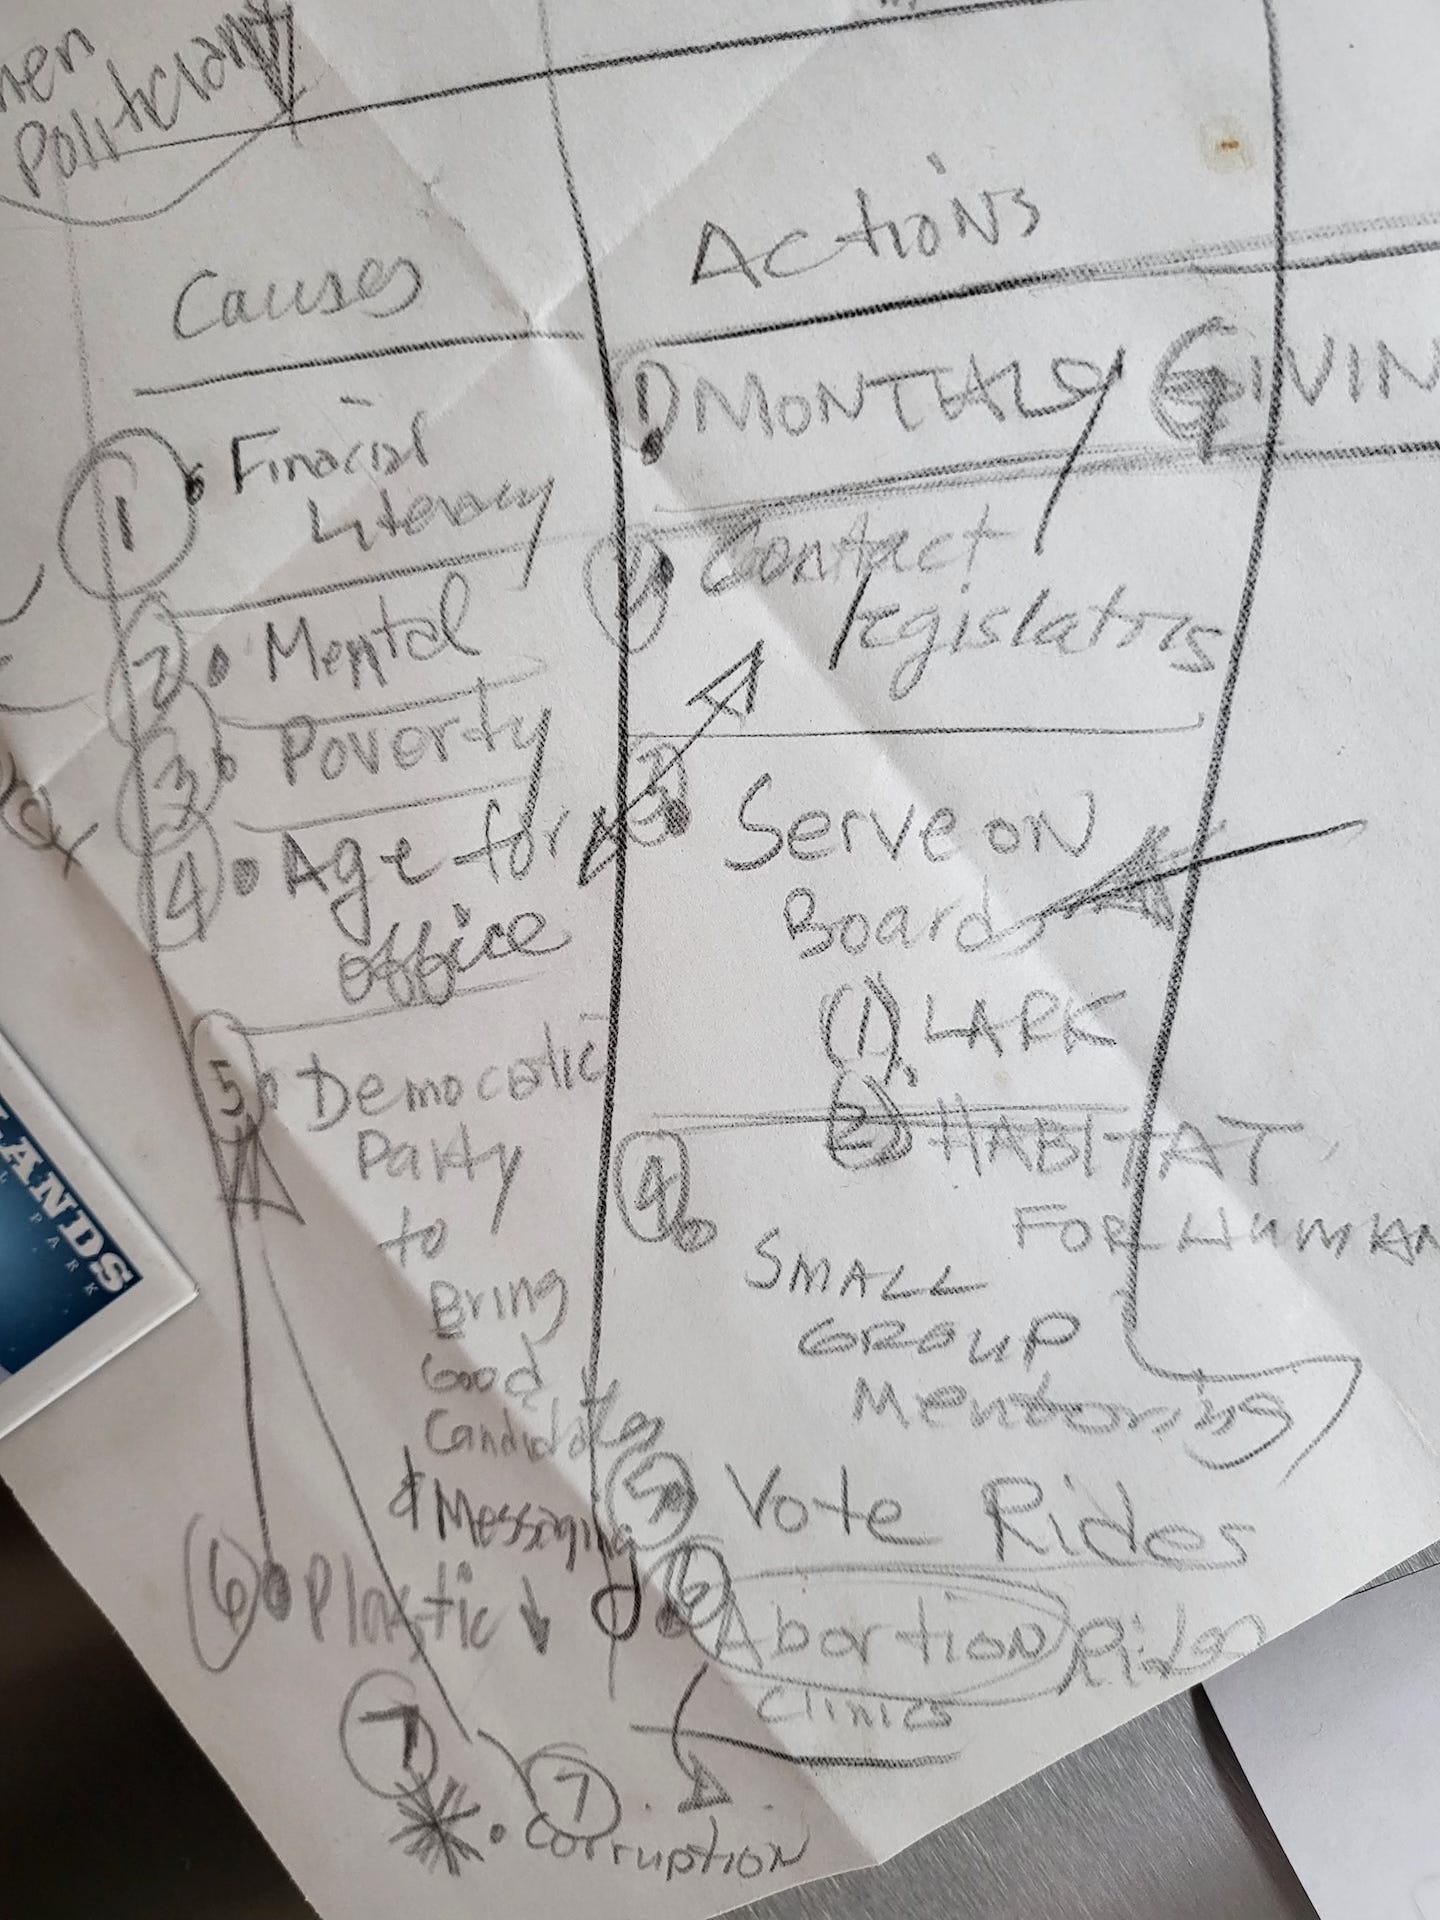 Politician
Causes
1 Finacial
Literacy
2 Mental
3 Poverty
4 Age for
office
5 Democratic
Party
to
Bring
Good
Candidates
& Messaging
6 Plastic ↓
7
7
* Corruption
Actions
1) MONTHLY GIVIN
2 Contact
legislators
3 Serve on
Boards
(1) LARK
(2) HABITAT
FOR HUMAN
4 SMALL
GROUP
Mentoring
5 Vote Rides
6 Abortion Rides
Clinics
LANDS
PARK